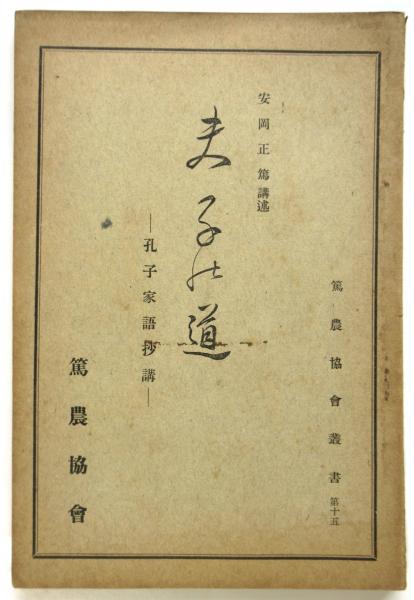 篤農協會叢書 第十五
安岡正篤講述
夫子の道
―孔子家語抄講―
篤農協會